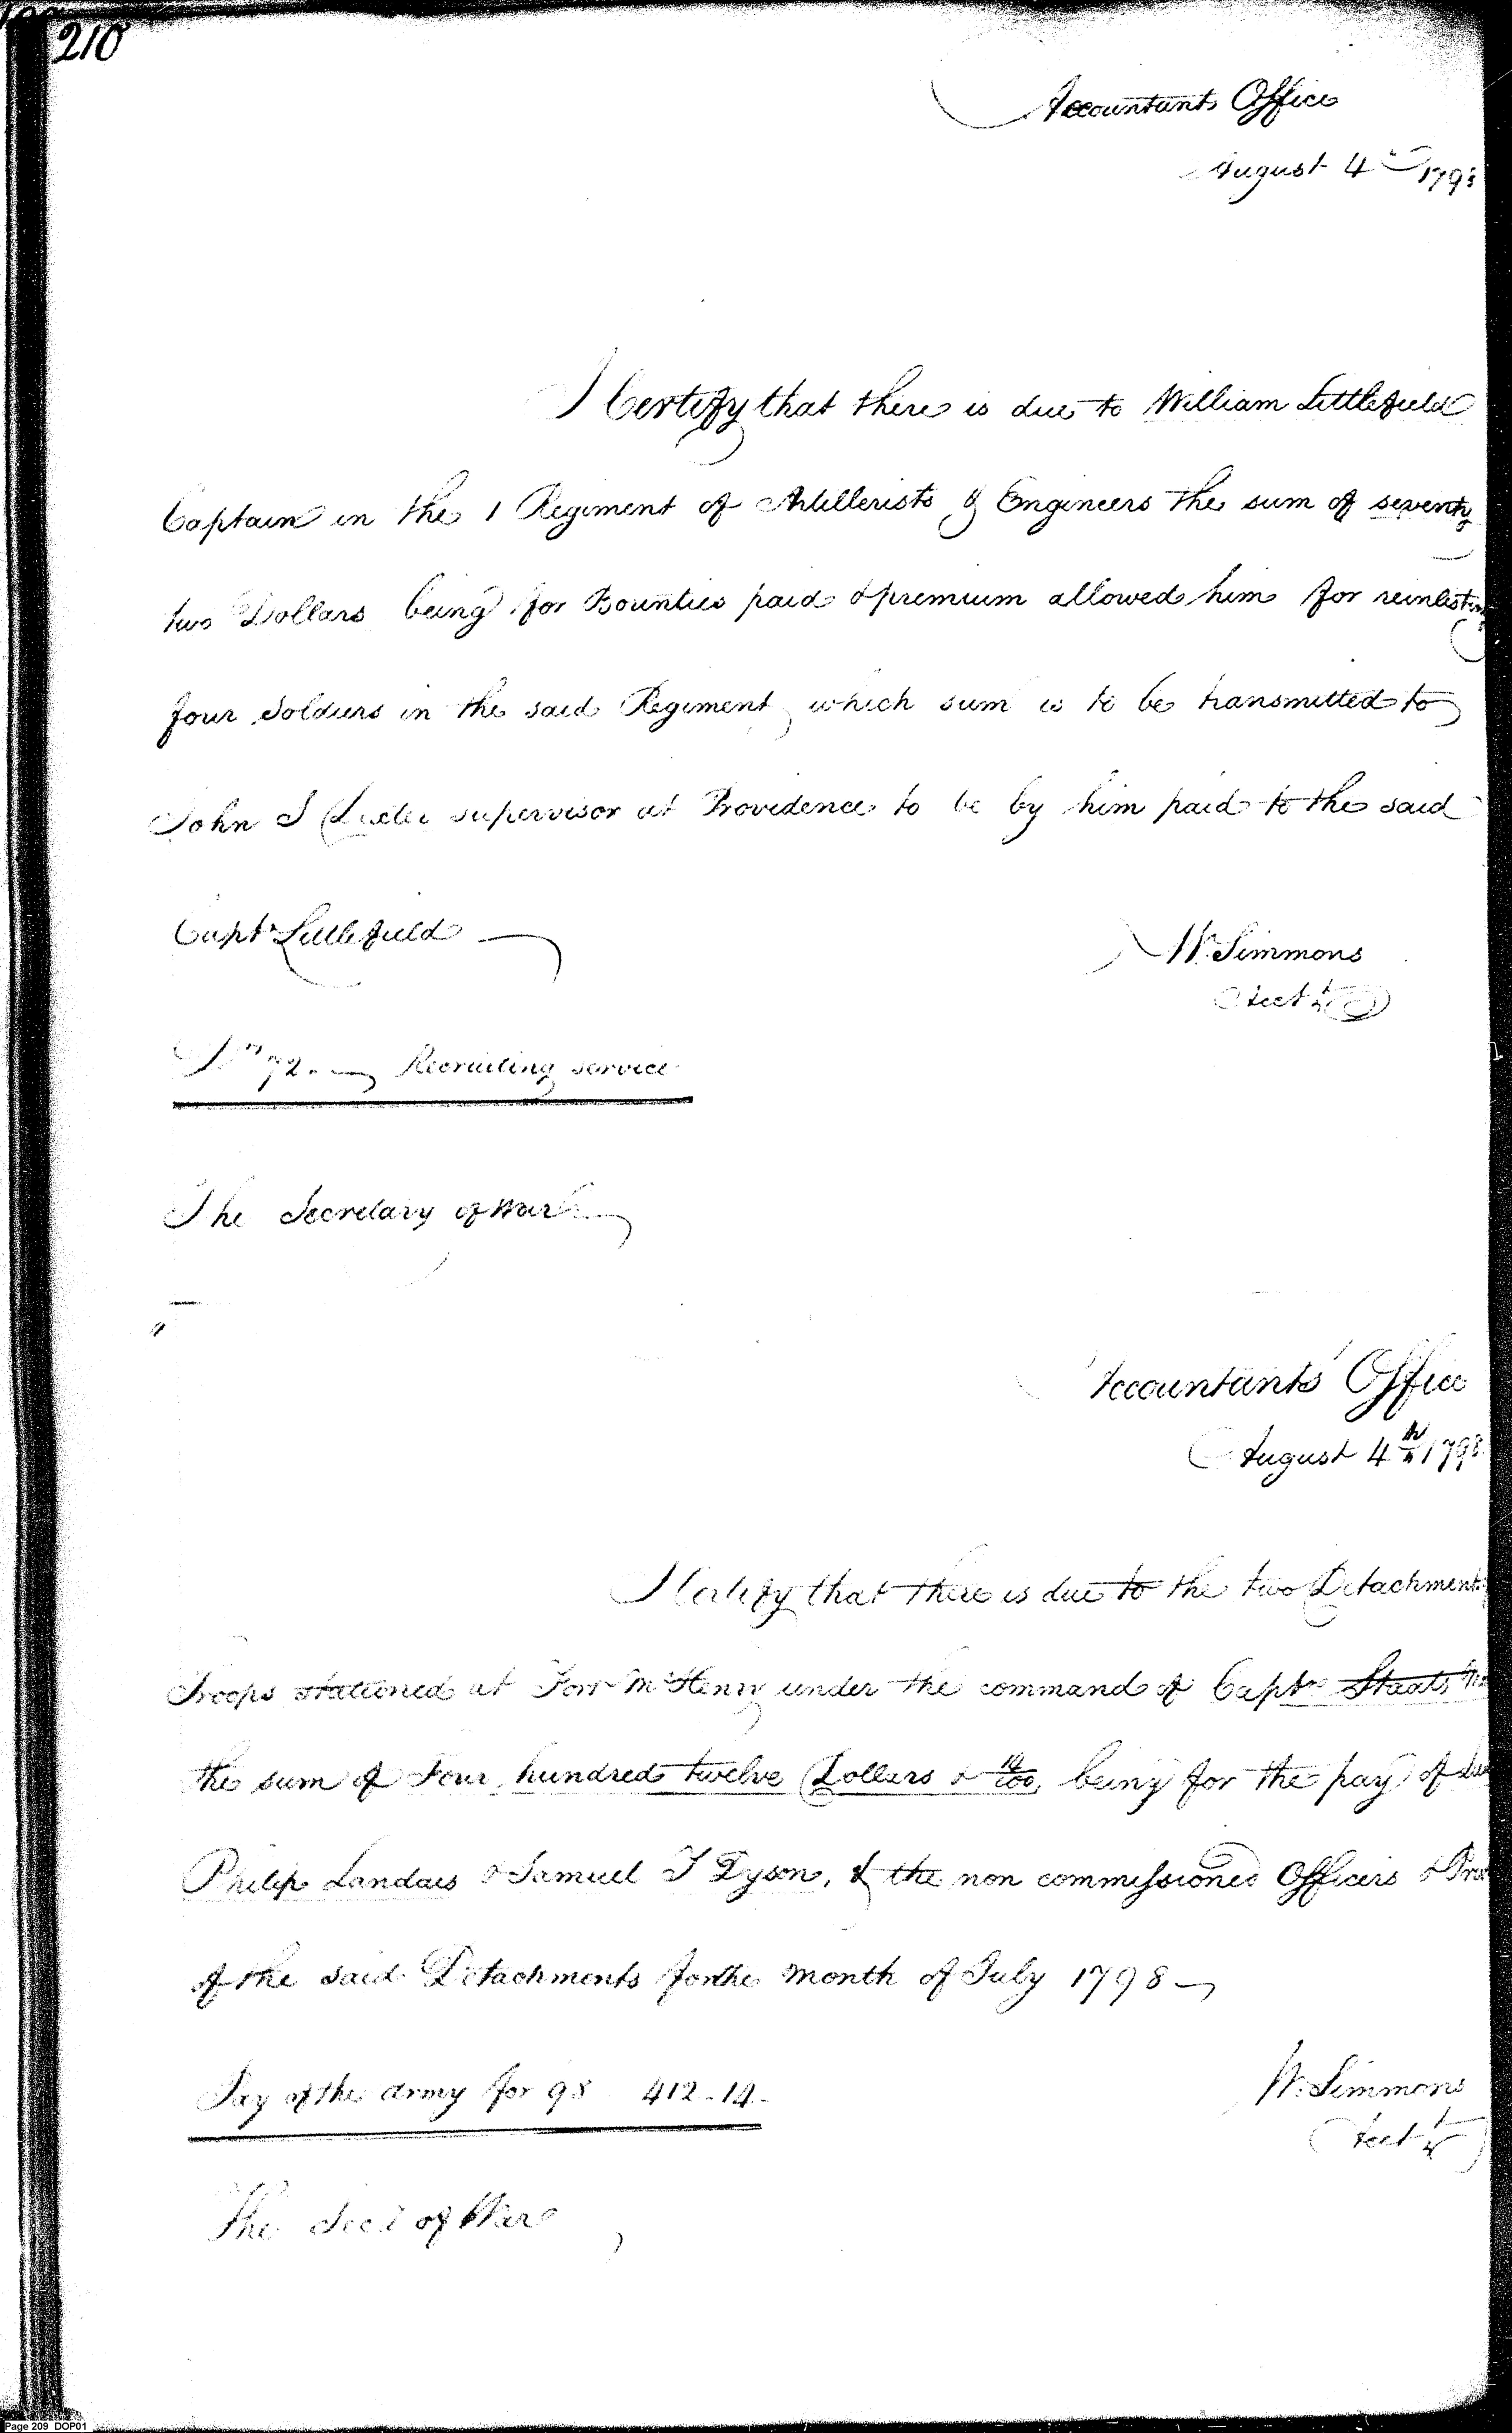 210
Accountants Office
August 4th 1798
I Certify that there is due to William Littlefield
Captain in the 1 Regiment of Artillerists & Engineers the sum of seventy
two Dollars being for Bounties paid & premium allowed him for reinlisting
four Soldiers in the said Regiment, which sum is to be transmitted to
John S Dexter supervisor at Providence to be by him paid to the said
Capt Littlefield
W Simmons
Acct
Drs 72. Recruiting service
The Secretary of War
Accountants Office
August 4th 1798
I Certify that there is due to the two Detachments
Troops stationed at Fort McHenry under the command of Capt Staats
the sum of Four hundred twelve Dollars & 14/100 being for the pay of
Philip Landais & Samuel T Dyson, & the non commissioned Officers &
of the said Detachments for the month of July 1798
W. Simmons
Acct
Pay of the army for 98 412.14.
The Secy of War
Page 209 DOP01